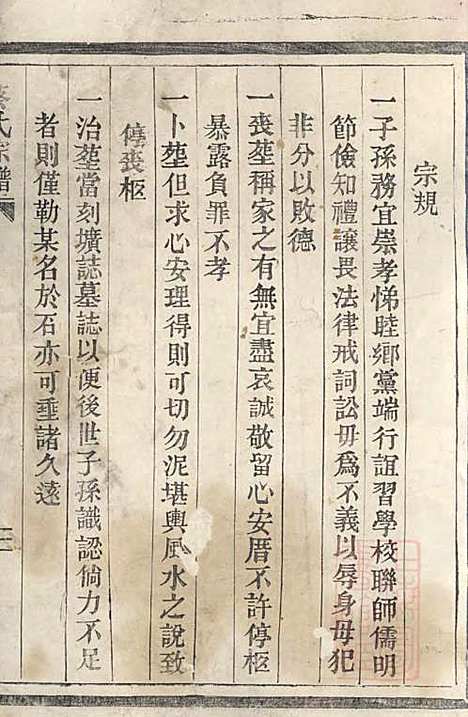 宗規
一子孫務宜崇孝悌睦鄉黨端行誼習學校聯師儒明
節儉知禮讓畏法律戒詞訟毋爲不義以辱身毋犯
非分以敗德
一喪塟稱家之有無宜盡哀誠敬留心安厝不許停柩
暴露負罪不孝
一卜塟但求心安理得則可切勿泥堪輿風水之說致
停喪柩
一治塟當刻壙誌墓誌以便後世子孫識認倘力不足
者則僅勒某名於石亦可垂諸久遠
氏宗譜